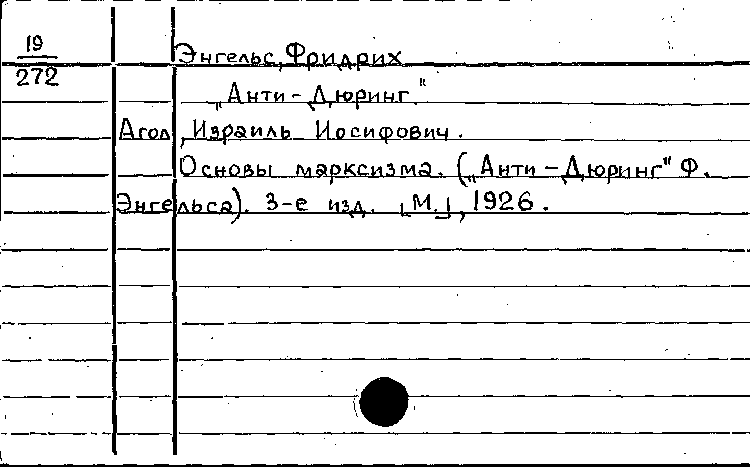 19
272
Энгельс, Фридрих
„Анти-Дюринг."
Агол, Израиль Иосифович.
Основы марксизма. („Анти-Дюринг" Ф.
Энгельса). 3-е изд. [М.], 1926.